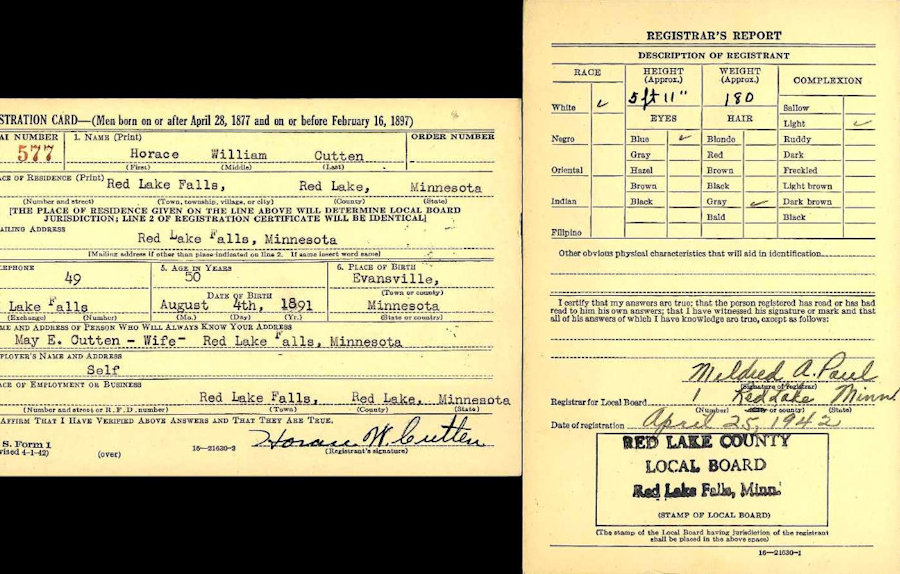 STRATION CARD—(Men born on or after April 28, 1877 and on or before February 16, 1897)
NUMBER 1. NAME (Print) ORDER NUMBER
577 Horace William Cutten
(First) (Middle) (Last)
ACE OF RESIDENCE (Print)
Red Lake Falls, Red Lake, Minnesota
(Number and street) (Town, township, village, or city) (County) (State)
[THE PLACE OF RESIDENCE GIVEN ON THE LINE ABOVE WILL DETERMINE LOCAL BOARD
JURISDICTION; LINE 2 OF REGISTRATION CERTIFICATE WILL BE IDENTICAL]
AILING ADDRESS
Red Lake Falls, Minnesota
[Mailing address if other than place indicated on line 2. If same insert word same]
LEPHONE 5. AGE IN YEARS 6. PLACE OF BIRTH
49 50 Evansville,
(Town or county)
DATE OF BIRTH
Lake Falls August 4th, 1891 Minnesota
(Exchange) (Number) (Mo.) (Day) (Yr.) (State or country)
ME AND ADDRESS OF PERSON WHO WILL ALWAYS KNOW YOUR ADDRESS
May E. Cutten - Wife- Red Lake Falls, Minnesota
PLOYER'S NAME AND ADDRESS
Self
ACE OF EMPLOYMENT OR BUSINESS
Red Lake Falls, Red Lake, Minnesota
(Number and street or R. F. D. number) (Town) (County) (State)
AFFIRM THAT I HAVE VERIFIED ABOVE ANSWERS AND THAT THEY ARE TRUE.
S. Form 1
vised 4-1-42) (over) 16—21630-2 Horace W. Cutten
(Registrant's signature)
REGISTRAR'S REPORT
DESCRIPTION OF REGISTRANT
RACE HEIGHT (Approx.) WEIGHT (Approx.) COMPLEXION
White 5 ft 11" 180 Sallow
EYES HAIR Light
Negro Blue Blonde Ruddy
Gray Red Dark
Oriental Hazel Brown Freckled
Brown Black Light brown
Indian Black Gray Dark brown
Bald Black
Filipino
Other obvious physical characteristics that will aid in identification
I certify that my answers are true; that the person registered has read or has had
read to him his own answers; that I have witnessed his signature or mark and that
all of his answers of which I have knowledge are true, except as follows:
Mildred A. Paul
(Signature of registrar)
Registrar for Local Board 1 Red Lake Minn
(Number) (City or county) (State)
Date of registration April 25, 1942
RED LAKE COUNTY
LOCAL BOARD
Red Lake Falls, Minn.
(STAMP OF LOCAL BOARD)
(The stamp of the Local Board having jurisdiction of the registrant
shall be placed in the above space)
16—21630-1